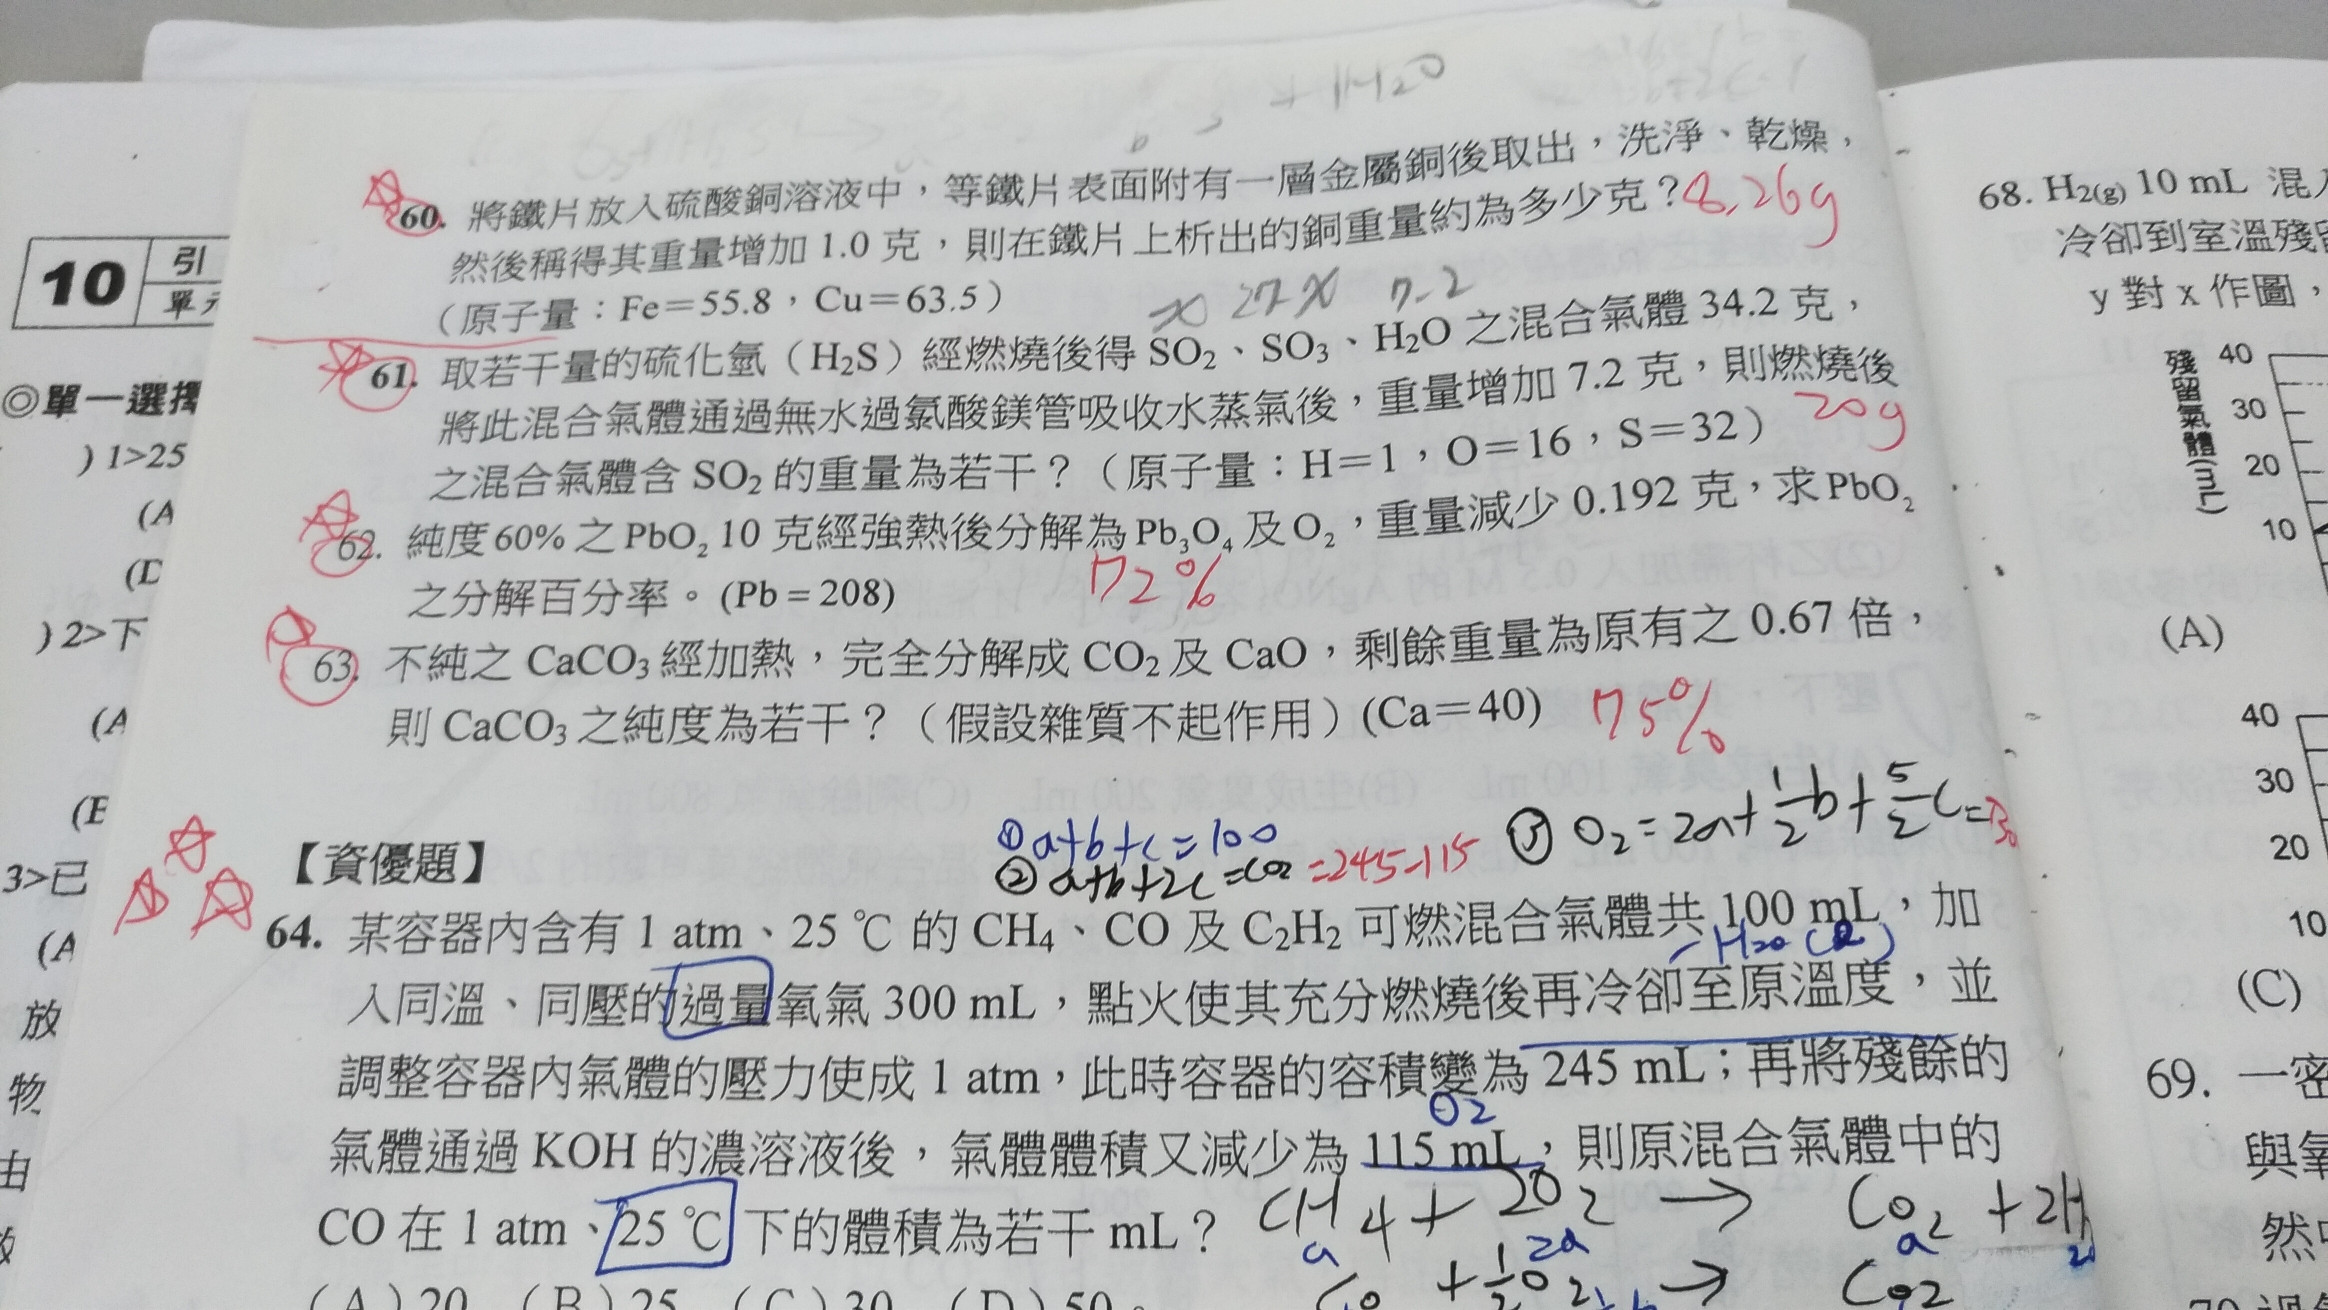 + H2O
60. 將鐵片放入硫酸銅溶液中，等鐵片表面附有一層金屬銅後取出，洗淨、乾燥，
然後稱得其重量增加 1.0 克，則在鐵片上析出的銅重量約為多少克？8.26g
（原子量：Fe＝55.8，Cu＝63.5）
x 27-x 7.2
61. 取若干量的硫化氫（H₂S）經燃燒後得 SO₂、SO₃、H₂O 之混合氣體 34.2 克，
將此混合氣體通過無水過氯酸鎂管吸收水蒸氣後，重量增加 7.2 克，則燃燒後
之混合氣體含 SO₂ 的重量為若干？（原子量：H＝1，O＝16，S＝32） 20g
62. 純度 60% 之 PbO₂ 10 克經強熱後分解為 Pb₃O₄ 及 O₂，重量減少 0.192 克，求 PbO₂
之分解百分率。(Pb = 208) 72%
63. 不純之 CaCO₃ 經加熱，完全分解成 CO₂ 及 CaO，剩餘重量為原有之 0.67 倍，
則 CaCO₃ 之純度為若干？（假設雜質不起作用）(Ca＝40) 75%
【資優題】
① a+b+c=100
② a+b+2c=CO2=245-115
③ O2=2a+1/2b+5/2c=
64. 某容器內含有 1 atm、25 ℃ 的 CH₄、CO 及 C₂H₂ 可燃混合氣體共 100 mL，加
-H2O(l)
入同溫、同壓的過量氧氣 300 mL，點火使其充分燃燒後再冷卻至原溫度，並
調整容器內氣體的壓力使成 1 atm，此時容器的容積變為 245 mL；再將殘餘的
O2
氣體通過 KOH 的濃溶液後，氣體體積又減少為 115 mL，則原混合氣體中的
CO 在 1 atm、25 ℃ 下的體積為若干 mL？
CH4+2O2→CO2+2H
a 2a a
CO+1/2O2→CO2
(A) 20 (B) 25 (C) 30 (D) 50。
10 引
單
◎單一選擇
) 1>25
(A
(D
) 2>下
(A
(B
3>已
(A
放
物
由
68. H₂(g) 10 mL 混
冷卻到室溫殘
y 對 x 作圖，
殘留氣體(mL)
40
30
20
10
(A)
40
30
20
10
(C)
69. 一密
與氧
然